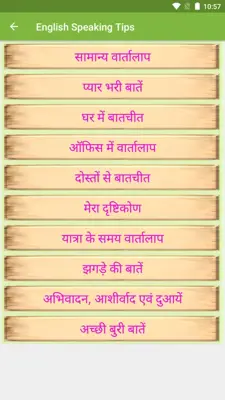 10:57
English Speaking Tips
सामान्य वार्तालाप
प्यार भरी बातें
घर में बातचीत
ऑफिस में वार्तालाप
दोस्तों से बातचीत
मेरा दृष्टिकोण
यात्रा के समय वार्तालाप
झगड़े की बातें
अभिवादन, आशीर्वाद एवं दुआयें
अच्छी बुरी बातें